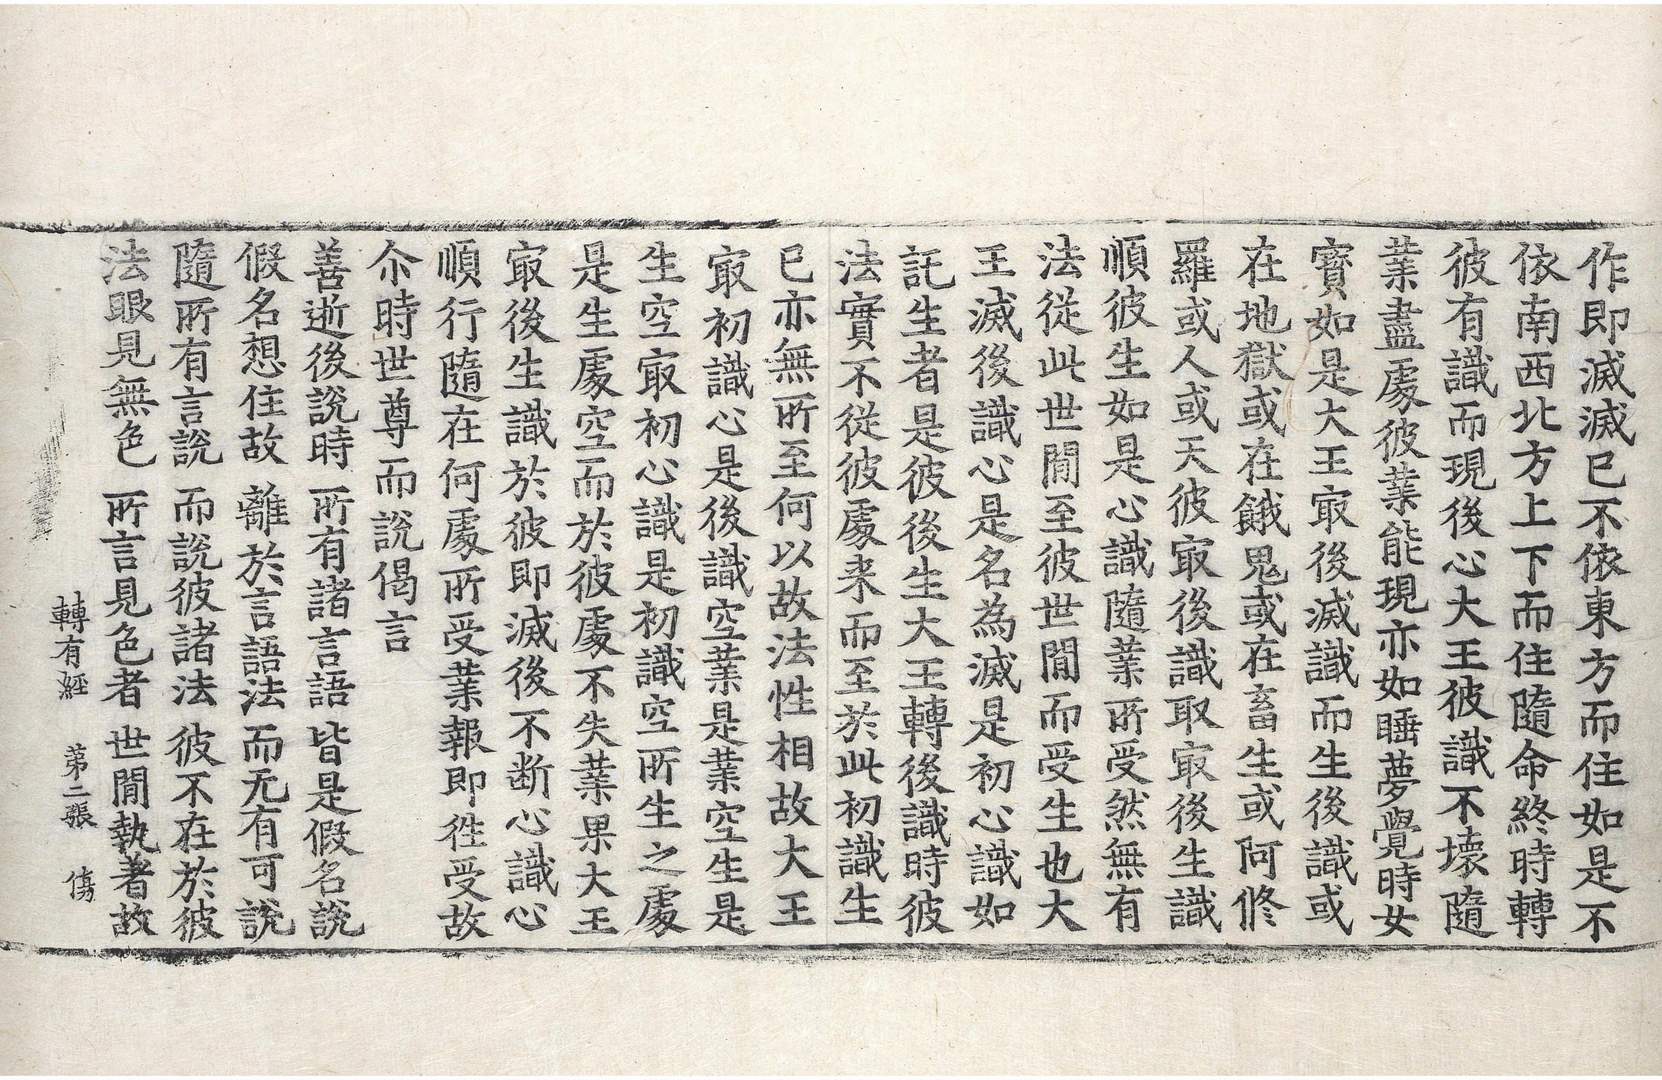 作即滅滅已不依東方而住如是不
依南西北方上下而住隨命終時轉
彼有識而現後心大王彼識不壞隨
業盡處彼業能現亦如睡夢覺時女
寶如是大王冣後滅識而生後識或
在地獄或在餓鬼或在畜生或阿修
羅或人或天彼冣後識取冣後生識
順彼生如是心識隨業所受然無有
法從此世間至彼世間而受生也大
王滅後識心是名為滅是初心識如
託生者是彼後生大王轉後識時彼
法實不從彼處来而至於此初識生
已亦無所至何以故法性相故大王
冣初識心是後識空業是業空生是
生空冣初心識是初識空所生之處
是生處空而於彼處不失業果大王
冣後生識於彼即滅後不断心識心
順行隨在何處所受業報即徃受故
尒時世尊而說偈言
善逝後說時 所有諸言語 皆是假名說
假名想住故 離於言語法 而无有可說
隨所有言說 而說彼諸法 彼不在於彼
法眼見無色 所言見色者 世間執著故
轉有經 第二張 傷